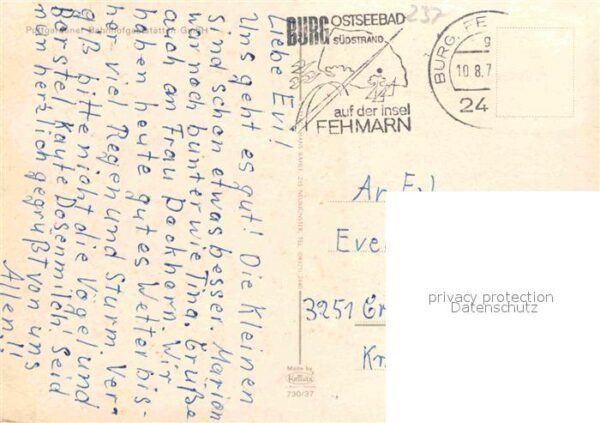 Puttgardener Bahnhofgaststätten GmbH
Liebe Evi!
Uns geht es gut! Die Kleinen
sind schon etwas besser. Marion
war noch bunter wie Tina. Grüße
auch an Frau Dackhorn. Wir
haben heute gutes Wetter bis-
her viel Regen und Sturm. Ver-
giß bitte nicht die Vögel und
Berstel Kaufe Dosenmilch! Seid
nun herzlich gegrüßt von uns
Allen!!
237
BURG OSTSEEBAD
SÜDSTRAND
auf der Insel
FEHMARN
BURG, FE
g
10.8.7
24
Eve
3251 Gr
Kr
privacy protection
Datenschutz
Made by
730/37